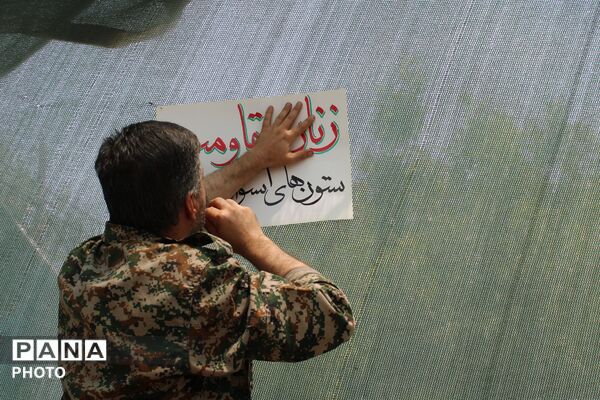 زنان مقاوم
ستون‌های استوار
PANA
PHOTO